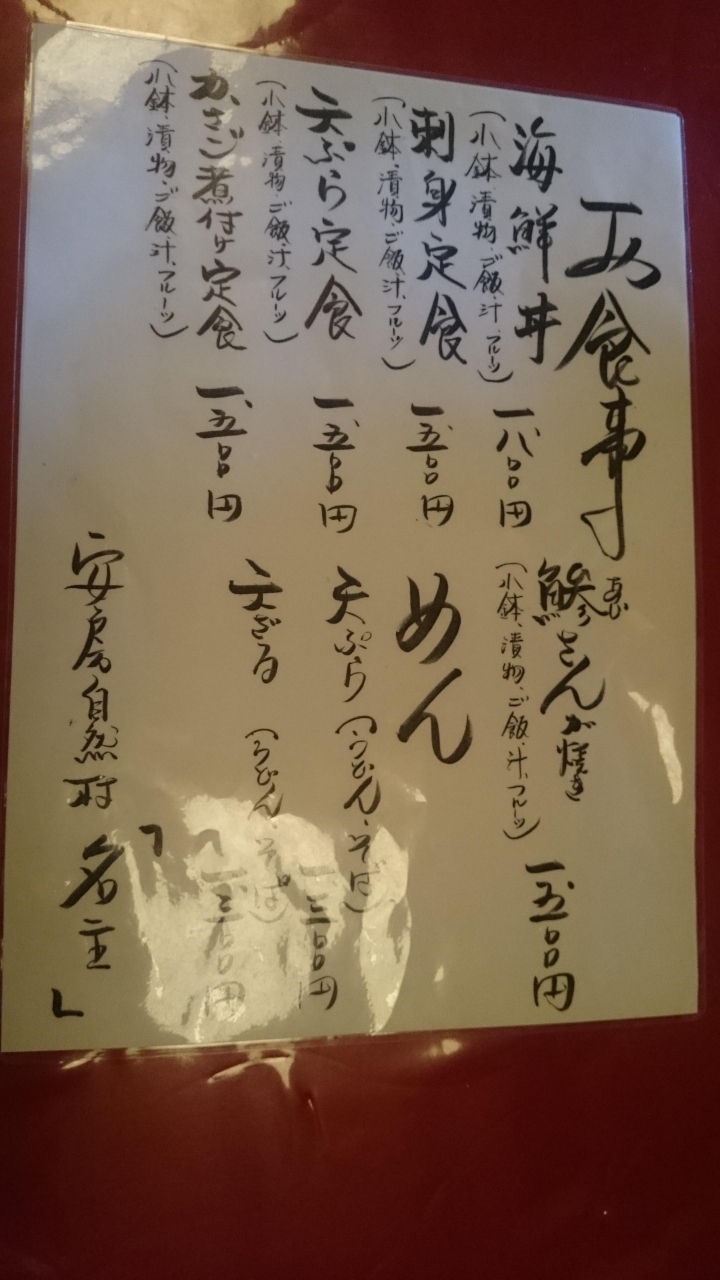 お食事
海鮮丼 一、八〇〇円
(小鉢、漬物、ご飯、汁、フルーツ)
刺身定食 一、五〇〇円
(小鉢、漬物、ご飯、汁、フルーツ)
天ぷら定食 一、五〇〇円
(小鉢、漬物、ご飯、汁、フルーツ)
かさご煮付け定食 一、五〇〇円
(小鉢、漬物、ご飯、汁、フルーツ)
鯵さんが焼き 一、五〇〇円
(小鉢、漬物、ご飯、汁、フルーツ)
めん
天ぷら(うどん、そば) 一、三〇〇円
天ざる(うどん、そば) 一、三〇〇円
安房自然村「名主」